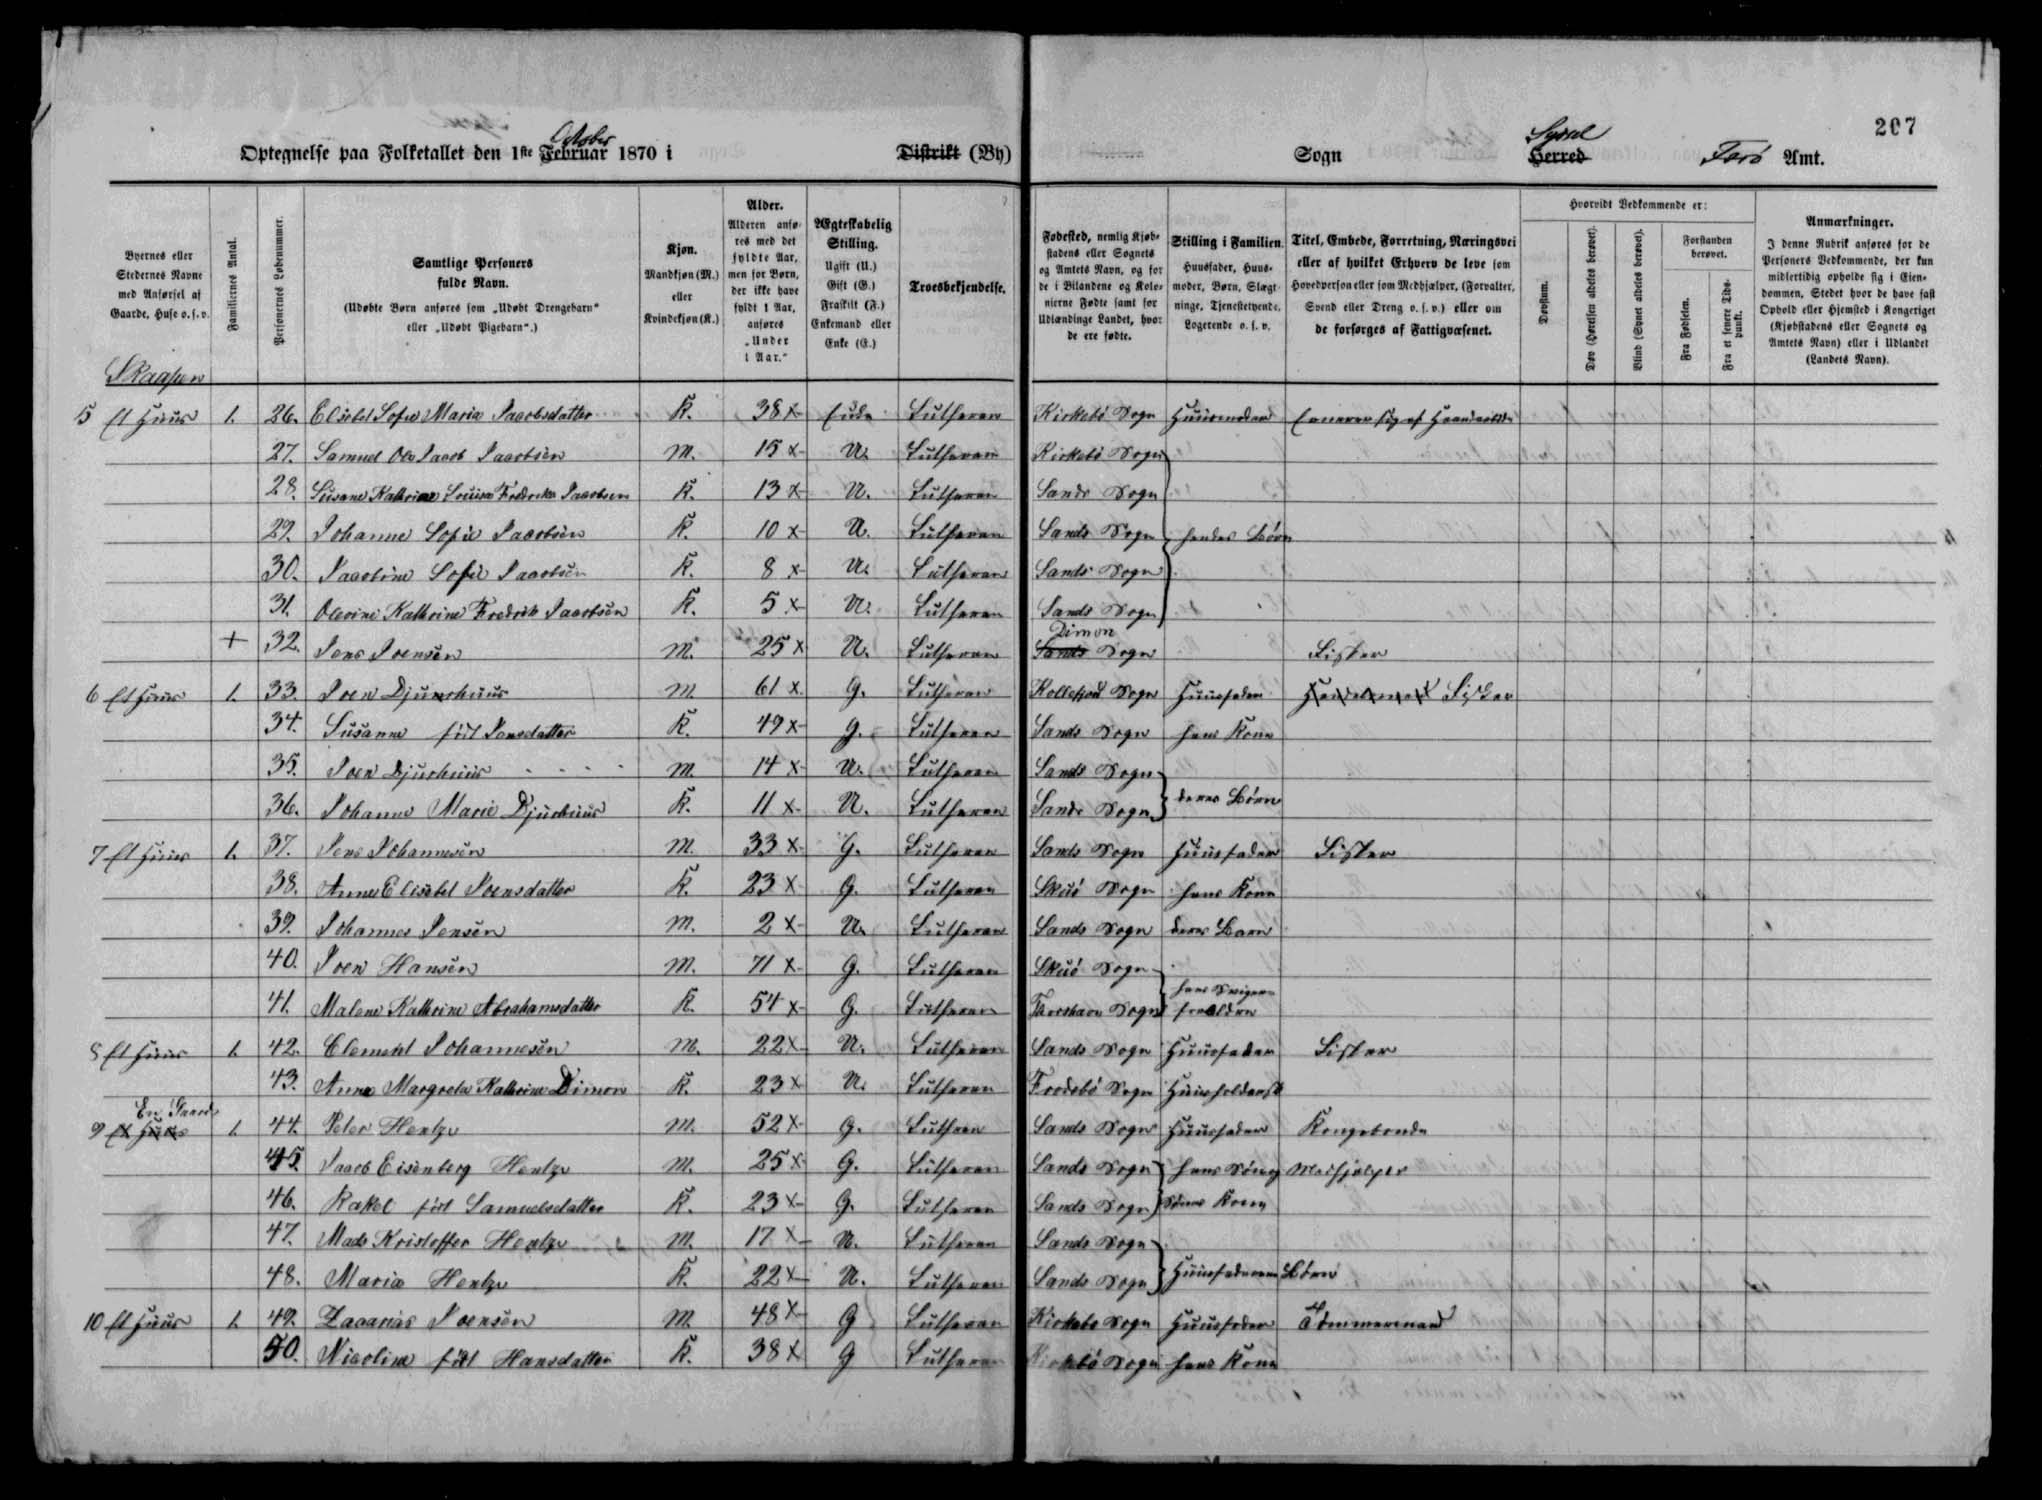 207
Optegnelse paa Folketallet den 1ste Februar October 1870 i Distrikt (By) Sogn Herred Syssel Færø Amt.
Byernes eller Stedernes Navne med Anførsel af Gaarde, Huse o. s. v.
Familiernes Antal.
Personernes Løbenummer.
Samtlige Personers fulde Navn.
(Udøbte Børn anføres som „Udøbt Drengebarn" eller „Udøbt Pigebarn".)
Kjøn.
Mandkjøn (M.) eller Kvindekjøn (K.)
Alder.
Alderen anføres med det fyldte Aar, men for Børn, der ikke have fyldt 1 Aar, anføres „Under 1 Aar."
Ægteskabelig Stilling.
Ugift (U.) Gift (G.) Fraskilt (F.) Enkemand eller Enke (E.)
Troesbekjendelse.
Fødested, nemlig Kjøbstadens eller Sognets og Amtets Navn, og for de i Bilandene og Kolonierne Fødte samt for Udlændinge Landet, hvor de ere fødte.
Stilling i Familien.
Huusfader, Huusmoder, Børn, Slægtninge, Tjenestetyende, Logerende o. s. v.
Titel, Embede, Forretning, Næringsvei eller af hvilket Erhverv de leve som Hovedperson eller som Medhjælper, (Forvalter, Svend eller Dreng o. s. v.) eller om de forsørges af Fattigvæsenet.
Hvorvidt Vedkommende er:
Døvstum.
Døv (Hørelsen aldeles berøvet).
Blind (Synet aldeles berøvet).
Forstanden berøvet.
Fra Fødselen.
Fra et senere Tidspunkt.
Anmærkninger.
I denne Rubrik anføres for de Personers Vedkommende, der kun midlertidig opholde sig i Eiendommen, Stedet hvor de have fast Ophold eller Hjemsted i Kongeriget (Kjøbstadens eller Sognets og Amtets Navn) eller i Udlandet (Landets Navn).
Skaapen
5 Et Huus 1. 26. Elisebet Sofie Maria Jacobsdatter K. 38 x Enke Lutheran Kirkebö Sogn Huusmoder Ernærer sig af
27. Samuel Ole Jacob Jacobsen M. 15 x U. Lutheran Kirkebö Sogn
28. Susane Kathrine Louisa Fredrika Jacobsen K. 13 x U. Lutheran Sands Sogn
29. Johanne Sofie Jacobsen K. 10 x U. Lutheran Sands Sogn hendes Börn
30. Jacobine Sofie Jacobsen K. 8 x U. Lutheran Sands Sogn
31. Olevine Kathrine Fredrik Jacobsen K. 5 x U. Lutheran Sands Sogn
+ 32. Jens Joensen M. 25 x U. Lutheran Sands Dimon Sogn Fisker
6 Et Huus 1. 33. Joen Djurhuus M. 61 x G. Lutheran Kollefjord Sogn Huusfader Fisker
34. Susanne födt Joensdatter K. 49 x G. Lutheran Sands Sogn hans Kone
35. Joen Djurhuus M. 14 x U. Lutheran Sands Sogn
36. Johanne Marie Djurhuus K. 11 x U. Lutheran Sands Sogn deres Börn
7 Et Huus 1. 37. Jens Johannesen M. 33 x G. Lutheran Sands Sogn Huusfader Fisker
38. Anne Elisebet Joensdatter K. 23 x G. Lutheran Skuö Sogn hans Kone
39. Johannes Jensen M. 2 x U. Lutheran Sands Sogn deres Barn
40. Joen Hansen M. 71 x G. Lutheran Skuö Sogn
41. Malene Kathrine Abrahamsdatter K. 54 x G. Lutheran Thorshavn Sogn hans Svigerforældre
8 Et Huus 1. 42. Clement Johannesen M. 22 x U. Lutheran Sands Sogn Huusfader Fisker
43. Anna Margreta Kathrine Dimon K. 23 x U. Lutheran Frodebö Sogn Huusholderske
9 Et Huus En Gaard 1. 44. Peter Hentze M. 52 x G. Luthran Sands Sogn Huusfader Kongsbonde
45. Jacob Eisenberg Hentze M. 25 x G. Lutheran Sands Sogn hans Sön og Medhjælper
46. Rakel födt Samuelsdatter K. 23 x G. Lutheran Sands Sogn Söns Kone
47. Mads Kristoffer Hentze M. 17 x U. Lutheran Sands Sogn
48. Maria Hentze K. 22 x U. Lutheran Sands Sogn Huusfaderens Börn
10 Et Huus 1. 49. Zacarias Joensen M. 48 x G Lutheran Kirkebö Sogn Huusfader Tömmermand
50. Nicoline födt Hansdatter K. 38 x G Lutheran Kirkebö Sogn hans Kone